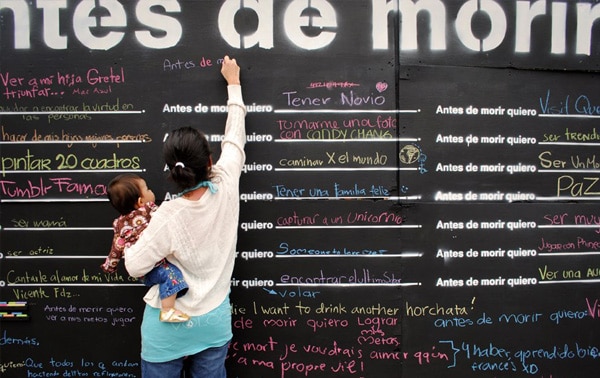 antes de morir
Antes de m
Ver a mi hija Gretel
triunfar...
ayudar a encontrar la virtud en
las personas
pintar 20 cuadros
Tumblr Famous
ser mamá
ser actriz
Cantarle al amor de mi vida con
Vicente Fdz...
Antes de morir quiero
ver a mis nietos jugar
además.
quiero: Que todos los q andan
haciendo
Antes de morir quiero Tener Novio
Antes de morir quiero tomarme una foto
con CANDY CHANG
Antes de morir quiero caminar X el mundo
Antes de morir quiero Tener una familia feliz
quiero capturar a un Unicornio
quiero Someone to love
quiero encontrar el
volar
die I want to drink another horchata!
de morir quiero Lograr
mis
metas
mort je voudrais aimer
ma propre vie!
Antes de morir quiero Visit
Antes de morir quiero ser
Antes de morir quiero Ser un
Antes de morir quiero Paz
Antes de morir quiero ser
Antes de morir quiero Jugar con
Antes de morir quiero Ver una
antes de morir quiero:
4 haber aprendido bien
frances XD